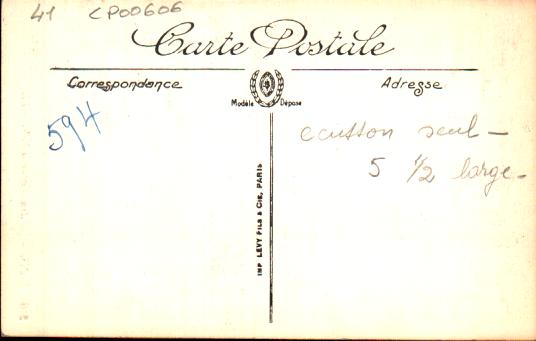 41 CP00606
Carte Postale
Correspondance
Adresse
Modèle Déposé
594
ecusson seul -
5 1/2 large -
IMP LEVY FILS & CIE, PARIS